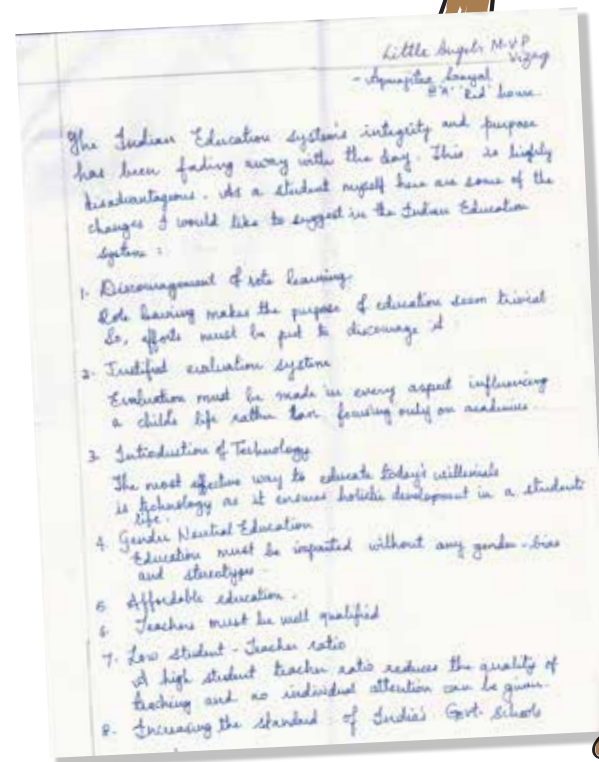 Little Angels M.V.P
Vizag
- Aparajitaa Sanyal
8 'A' 'Red' house.
The Indian Education system's integrity and purpose
has been fading away with the day. This is highly
disadvantageous. As a student myself here are some of the
changes I would like to suggest in the Indian Education
System :
1. Discouragement of rote learning
Rote learning makes the purpose of education seem trivial
So, efforts must be put to discourage it.
2. Justified evaluation system
Evaluation must be made in every aspect influencing
a child's life rather than focusing only on academics.
3. Introduction of Technology
The most effective way to educate today's millenials
is technology as it ensures holistic development in a students
life.
4. Gender Neutral Education
Education must be imparted without any gender-bias
and stereotypes.
5. Affordable education.
6. Teachers must be well qualified
7. Low student - Teacher ratio
A high student teacher ratio reduces the quality of
teaching and no individual attention can be given.
8. Increasing the standard of India's Govt. Schools